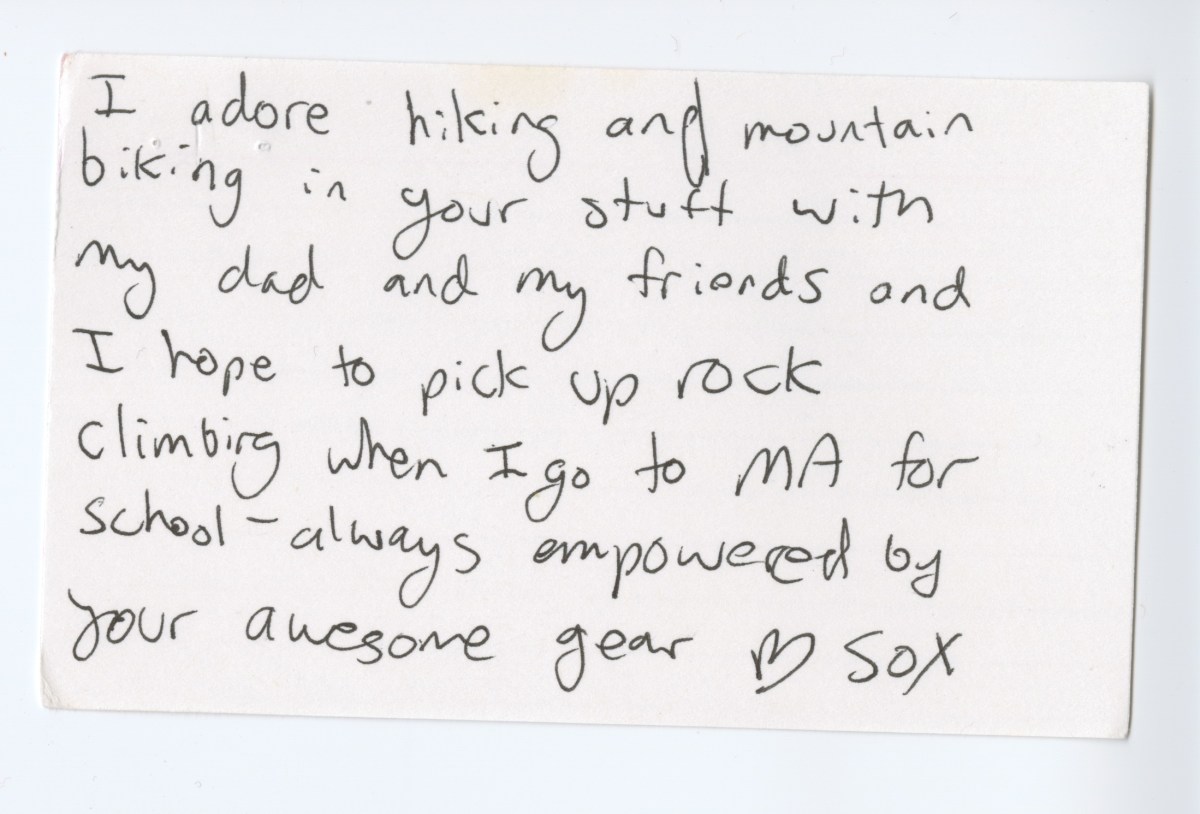 I adore hiking and mountain
biking in your stuff with
my dad and my friends and
I hope to pick up rock
climbing when I go to MA for
school - always empowered by
your awesome gear ♡ SOX